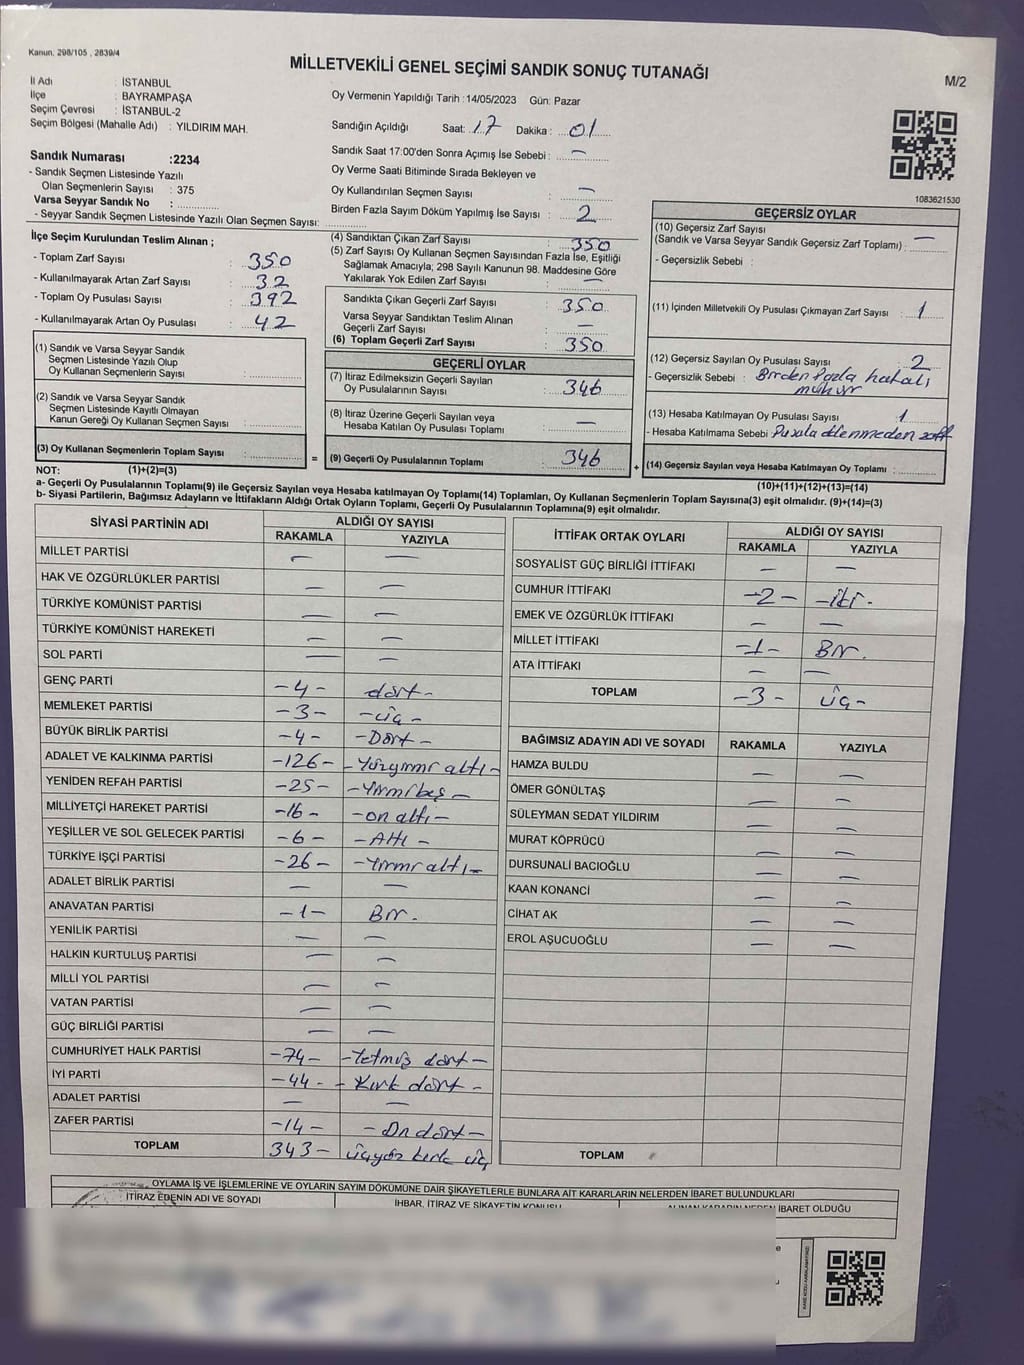 Kanun. 298/105 , 2839/4
MİLLETVEKİLİ GENEL SEÇİMİ SANDIK SONUÇ TUTANAĞI
M/2
İl Adı : İSTANBUL
İlçe : BAYRAMPAŞA
Seçim Çevresi : İSTANBUL-2
Seçim Bölgesi (Mahalle Adı) : YILDIRIM MAH.
Sandık Numarası :2234
- Sandık Seçmen Listesinde Yazılı
Olan Seçmenlerin Sayısı : 375
Varsa Seyyar Sandık No :
- Seyyar Sandık Seçmen Listesinde Yazılı Olan Seçmen Sayısı:
Oy Vermenin Yapıldığı Tarih : 14/05/2023 Gün: Pazar
Sandığın Açıldığı Saat: 17 Dakika : 01
Sandık Saat 17:00'den Sonra Açımış İse Sebebi : —
Oy Verme Saati Bitiminde Sırada Bekleyen ve
Oy Kullandırılan Seçmen Sayısı —
Birden Fazla Sayım Döküm Yapılmış İse Sayısı : 2
1083621530
İlçe Seçim Kurulundan Teslim Alınan ;
- Toplam Zarf Sayısı : 350
- Kullanılmayarak Artan Zarf Sayısı : 32
- Toplam Oy Pusulası Sayısı : 392
- Kullanılmayarak Artan Oy Pusulası : 42
(1) Sandık ve Varsa Seyyar Sandık
Seçmen Listesinde Yazılı Olup
Oy Kullanan Seçmenlerin Sayısı :
(2) Sandık ve Varsa Seyyar Sandık
Seçmen Listesinde Kayıtlı Olmayan
Kanun Gereği Oy Kullanan Seçmen Sayısı :
(3) Oy Kullanan Seçmenlerin Toplam Sayısı :
(4) Sandıktan Çıkan Zarf Sayısı : 350
(5) Zarf Sayısı Oy Kullanan Seçmen Sayısından Fazla İse, Eşitliği
Sağlamak Amacıyla; 298 Sayılı Kanunun 98. Maddesine Göre
Yakılarak Yok Edilen Zarf Sayısı : —
Sandıkta Çıkan Geçerli Zarf Sayısı : 350
Varsa Seyyar Sandıktan Teslim Alınan
Geçerli Zarf Sayısı : —
(6) Toplam Geçerli Zarf Sayısı : 350
GEÇERLİ OYLAR
(7) İtiraz Edilmeksizin Geçerli Sayılan
Oy Pusulalarının Sayısı : 346
(8) İtiraz Üzerine Geçerli Sayılan veya
Hesaba Katılan Oy Pusulaları Toplamı : —
= (9) Geçerli Oy Pusulalarının Toplamı : 346 +
GEÇERSİZ OYLAR
(10) Geçersiz Zarf Sayısı
(Sandık ve Varsa Seyyar Sandık Geçersiz Zarf Toplamı) : —
- Geçersizlik Sebebi :
(11) İçinden Milletvekili Oy Pusulası Çıkmayan Zarf Sayısı : 1
(12) Geçersiz Sayılan Oy Pusulası Sayısı : 2
- Geçersizlik Sebebi : Birden fazla hatalı
mühür
(13) Hesaba Katılmayan Oy Pusulası Sayısı : 1
- Hesaba Katılmama Sebebi : Pusula
(14) Geçersiz Sayılan veya Hesaba Katılmayan Oy Toplamı :
NOT: (1)+(2)=(3) (10)+(11)+(12)+(13)=(14)
a- Geçerli Oy Pusulalarının Toplamı(9) ile Geçersiz Sayılan veya Hesaba katılmayan Oy Toplamı(14) Toplamları, Oy Kullanan Seçmenlerin Toplam Sayısına(3) eşit olmalıdır. (9)+(14)=(3)
b- Siyasi Partilerin, Bağımsız Adayların ve İttifakların Aldığı Ortak Oyların Toplamı, Geçerli Oy Pusulalarının Toplamına(9) eşit olmalıdır.
SİYASİ PARTİNİN ADI ALDIĞI OY SAYISI
RAKAMLA YAZIYLA
MİLLET PARTİSİ — —
HAK VE ÖZGÜRLÜKLER PARTİSİ — —
TÜRKİYE KOMÜNİST PARTİSİ — —
TÜRKİYE KOMÜNİST HAREKETİ — —
SOL PARTİ — —
GENÇ PARTİ -4- dört-
MEMLEKET PARTİSİ -3- -üç-
BÜYÜK BİRLİK PARTİSİ -4- -Dört-
ADALET VE KALKINMA PARTİSİ -126- -Yüzyirmi altı-
YENİDEN REFAH PARTİSİ -25- -Yirmibeş-
MİLLİYETÇİ HAREKET PARTİSİ -16- -on altı-
YEŞİLLER VE SOL GELECEK PARTİSİ -6- -Altı-
TÜRKİYE İŞÇİ PARTİSİ -26- -Yirmi altı-
ADALET BİRLİK PARTİSİ — —
ANAVATAN PARTİSİ -1- Bir.
YENİLİK PARTİSİ — —
HALKIN KURTULUŞ PARTİSİ — —
MİLLİ YOL PARTİSİ — —
VATAN PARTİSİ — —
GÜÇ BİRLİĞİ PARTİSİ — —
CUMHURİYET HALK PARTİSİ -74- -Yetmiş dört-
İYİ PARTİ -44- - Kırk dört-
ADALET PARTİSİ — —
ZAFER PARTİSİ -14- -On dört-
TOPLAM 343- üçyüz kırk üç
İTTİFAK ORTAK OYLARI ALDIĞI OY SAYISI
RAKAMLA YAZIYLA
SOSYALİST GÜÇ BİRLİĞİ İTTİFAKI — —
CUMHUR İTTİFAKI -2- -iki-
EMEK VE ÖZGÜRLÜK İTTİFAKI — —
MİLLET İTTİFAKI -1- Bir.
ATA İTTİFAKI — —
TOPLAM -3- üç-
BAĞIMSIZ ADAYIN ADI VE SOYADI RAKAMLA YAZIYLA
HAMZA BULDU — —
ÖMER GÖNÜLTAŞ — —
SÜLEYMAN SEDAT YILDIRIM — —
MURAT KÖPRÜCÜ — —
DURSUNALİ BACIOĞLU — —
KAAN KONANCİ — —
CİHAT AK — —
EROL AŞUCUOĞLU — —
TOPLAM
OYLAMA İŞ VE İŞLEMLERİNE VE OYLARIN SAYIM DÖKÜMÜNE DAİR ŞİKAYETLERLE BUNLARA AİT KARARLARIN NELERDEN İBARET BULUNDUKLARI
İTİRAZ EDENİN ADI VE SOYADI İHBAR, İTİRAZ VE ŞİKAYETİN KONUSU ALINAN KARARIN NEDEN İBARET OLDUĞU